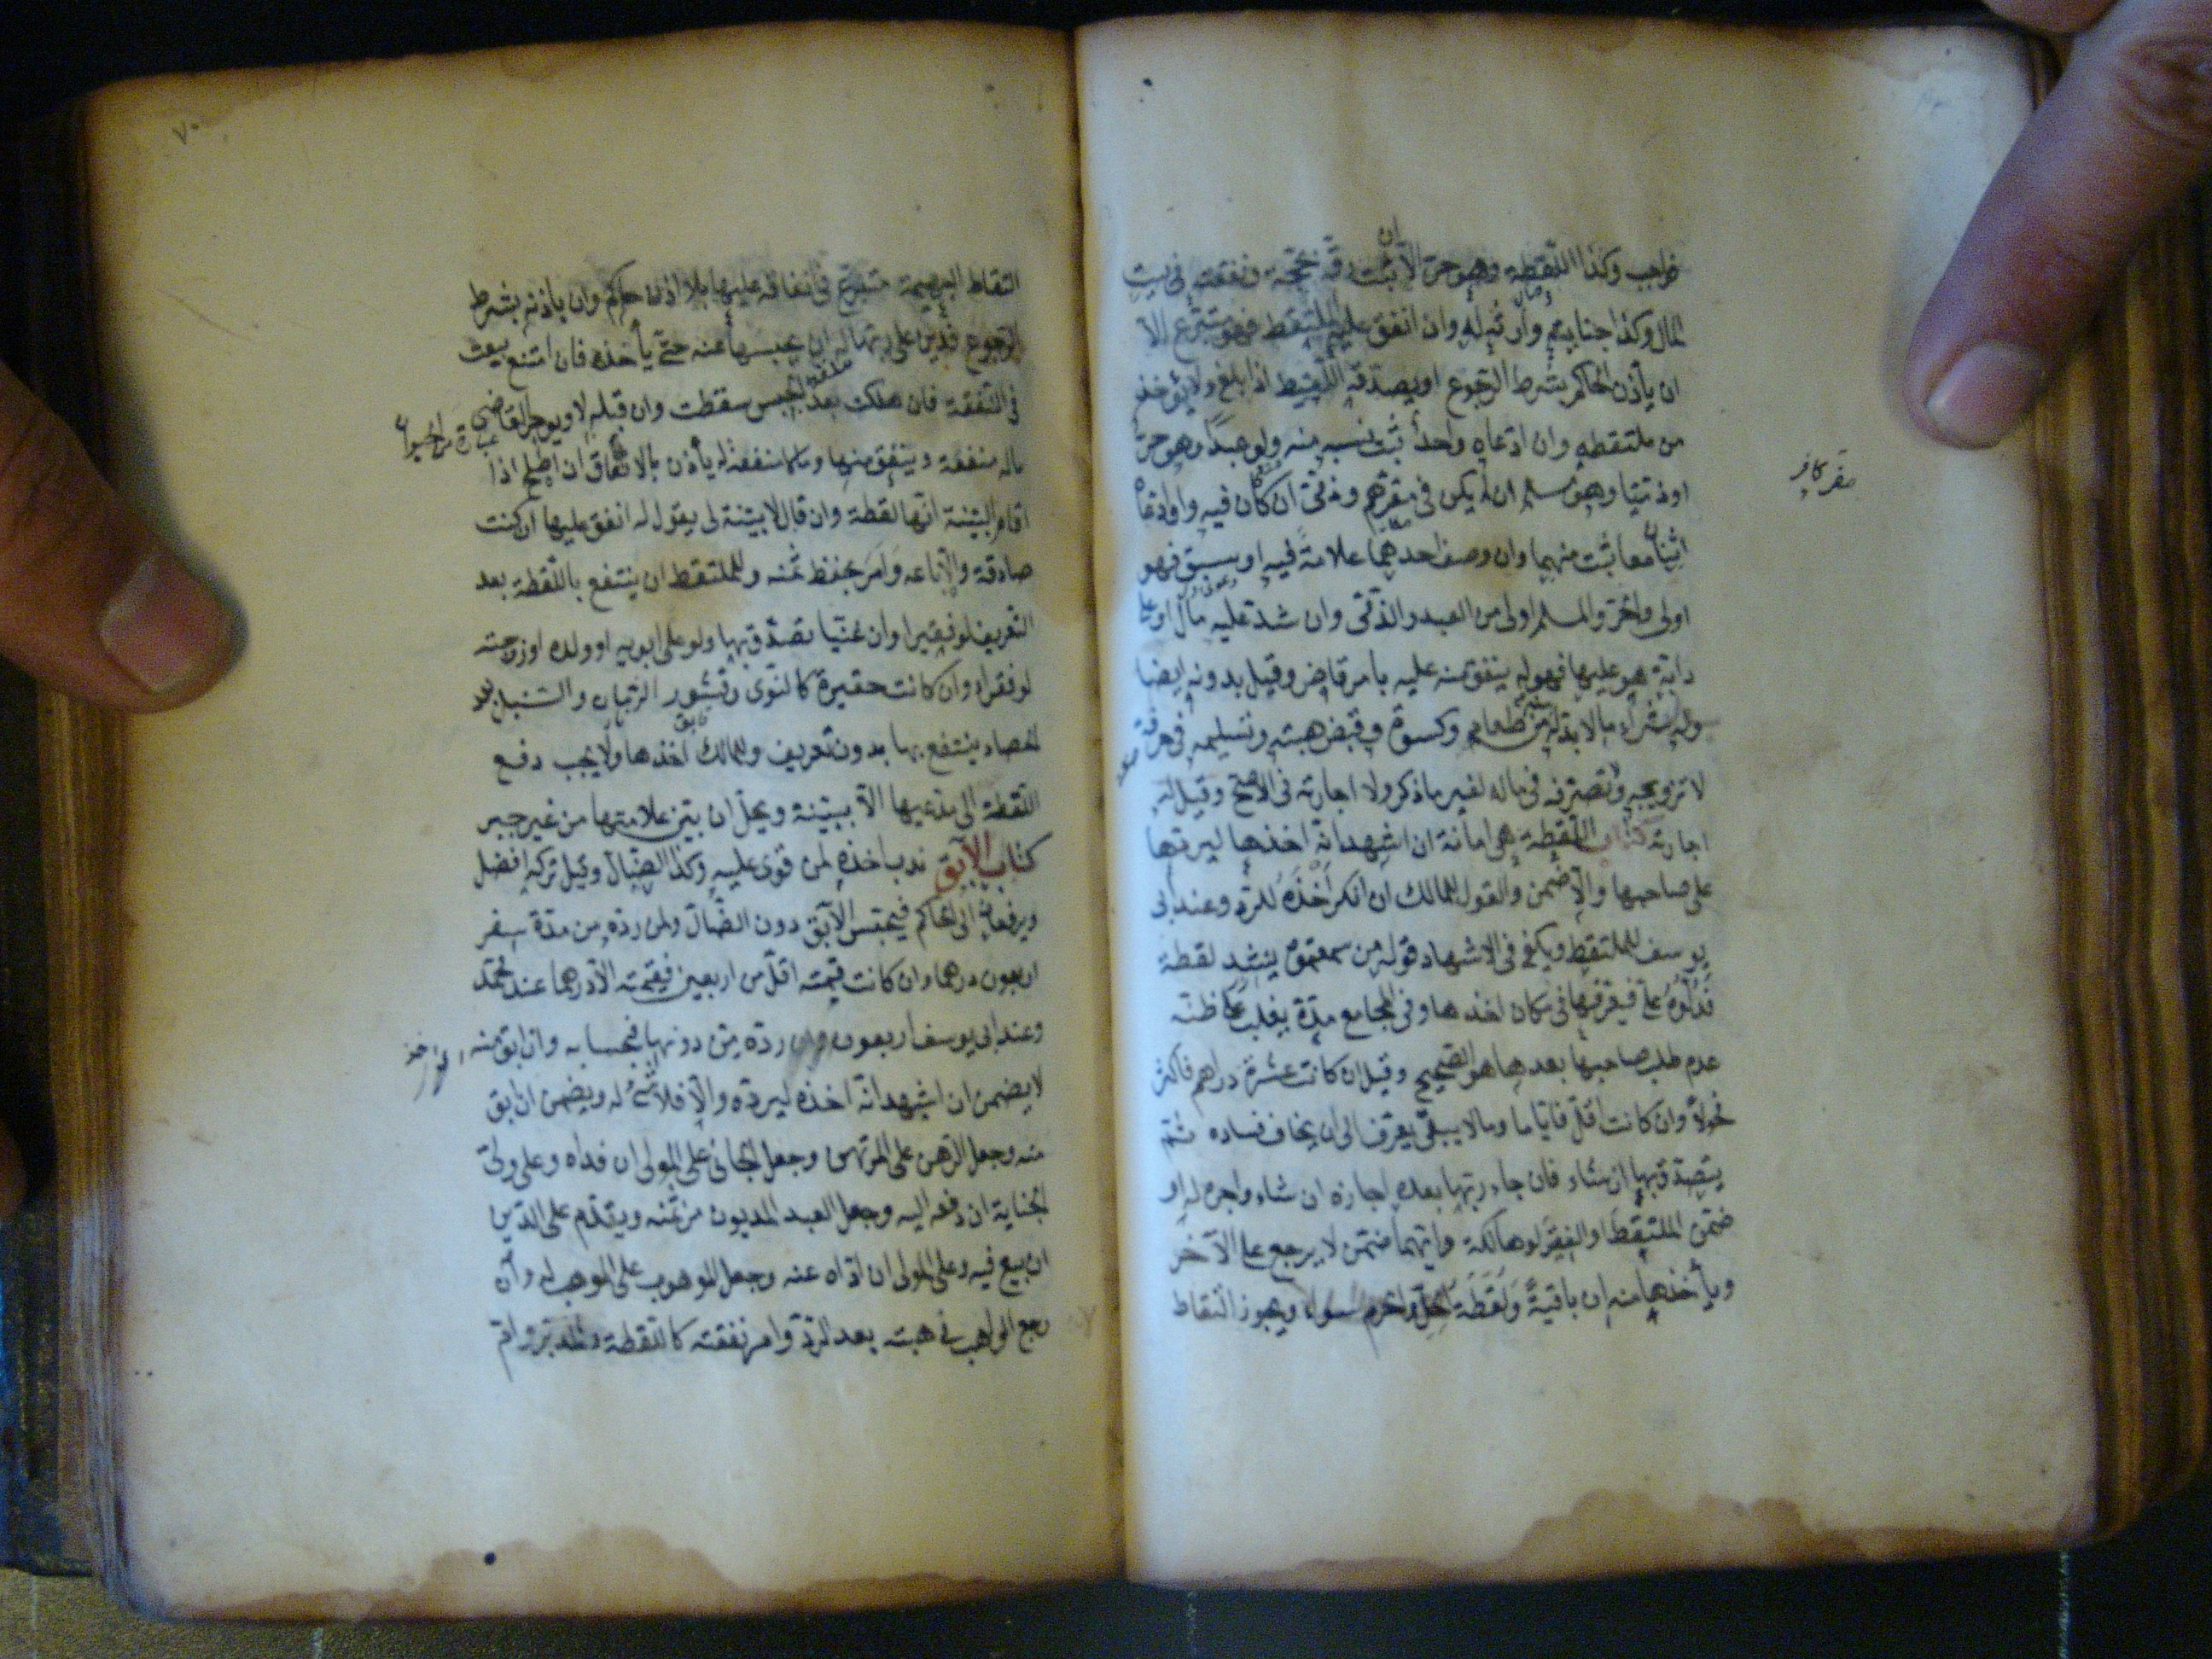 فواجب وكذا اللقطة وهو حر الا ان ثبت رقه بحجة ونفقته في بيت
المال وكذا جنايته وارثه له وان انفق عليه الملتقط فهو متبرع الا
ان يأذن الحاكم بشرط الرجوع او يصدقه اللقيط اذا بلغ ولا يؤخذ
من ملتقطه وان ادعاه واحد ثبت نسبه منه ولو عبدا وهو حر
او ذميا وهو مسلم ان لم يكن في مقرهم وذمي ان كان فيه ولو ادعاه
اثنان معا ثبت منهما وان وصف احدهما علامة فيه او سبق فهو
اولى والحر والمسلم اولى من العبد والذمي وان شد عليه مال او على
دابة هو عليها فهو له ينفق منه عليه بامر قاض وقيل بدونه ايضا
وله شراء ما لا بد له من طعام وكسوة وقبض هبته وتسليمه في حرفة
لا تزويجه وتصرفه في ماله لغير ما ذكر ولا اجارته في الاصح وقيل له
اجارته كتاب اللقطة هي امانة ان اشهد انه اخذها ليردها
على صاحبها والا ضمن والقول للمالك ان انكر اخذه للرد وعند ابي
يوسف للملتقط ويكفي في الاشهاد قوله من سمعتموه ينشد لقطة
فدلوه علي فيعرفها في مكان اخذها وفي المجامع مدة يغلب على ظنه
عدم طلب صاحبها بعدها هو الصحيح وقيل ان كانت عشرة دراهم فاكثر
فحولا وان كانت اقل فاياما وما لا يبقى يعرف الى ان يخاف فساده ثم
يتصدق بها ان شاء فان جاء ربها بعده اجازه ان شاء واجره له او
ضمن الملتقط او الفقير لو هالكة وايهما ضمن لا يرجع على الآخر
ويأخذها منه ان باقية ولقطة الحل والحرم سواء ويجوز التقاط
مقر كافر
٧٠
التقاط البهيمة متبرع في انفاقه عليها بلا اذن حاكم وان باذنه بشرط
الرجوع فدين على ربها له ان يحبسها عنه حتى يأخذه فان امتنع بيعت
في النفقة فان هلكت بعد الحبس سقطت وان قبله لا ويوجر القاضي
ماله منفعة وينفق منها وما لا منفعة له يأذن بالانفاق ان اصلح اذا
اقام البينة انها لقطة وان قال لا بينة لي يقول له انفق عليها ان كنت
صادقة والا باعه وامر بحفظ ثمنه وللملتقط ان ينتفع باللقطة بعد
التعريف لو فقيرا وان غنيا تصدق بها ولو على ابويه او ولده او زوجته
لو فقراء وان كانت حقيرة كالنوى وقشور الرمان والسنبل بعد
الحصاد ينتفع بها بدون تعريف وللمالك اخذها ولا يجب دفع
اللقطة الى مدعيها الا ببينة ويحل ان بين علامتها من غير جبر
كتاب الآبق ندب اخذه لمن قوي عليه وكذا الضال وقيل تركه افضل
ويرفعان الى الحاكم فيحبس الآبق دون الضال ولمن رده من مدة سفر
اربعون درهما وان كانت قيمته اقل من اربعين فقيمته الا درهما عند محمد
وعند ابي يوسف اربعون وان رده من دونها فبحسابه وان ابق منه
لا يضمن ان اشهد انه اخذه ليرده والا فلا شئ له ويضمن ان ابق
منه وجعل الرهن على المرتهن وجعل الجاني على المولى ان فداه وعلى ولي
الجناية ان دفعه اليه وجعل العبد المديون من ثمنه ويقدم على الدين
ان بيع فيه وعلى المولى ان اداه عنه وجعل الموهوب على الموهوب له وان
رجع الواهب في هبته بعد الرد وامر نفقته كاللقطة